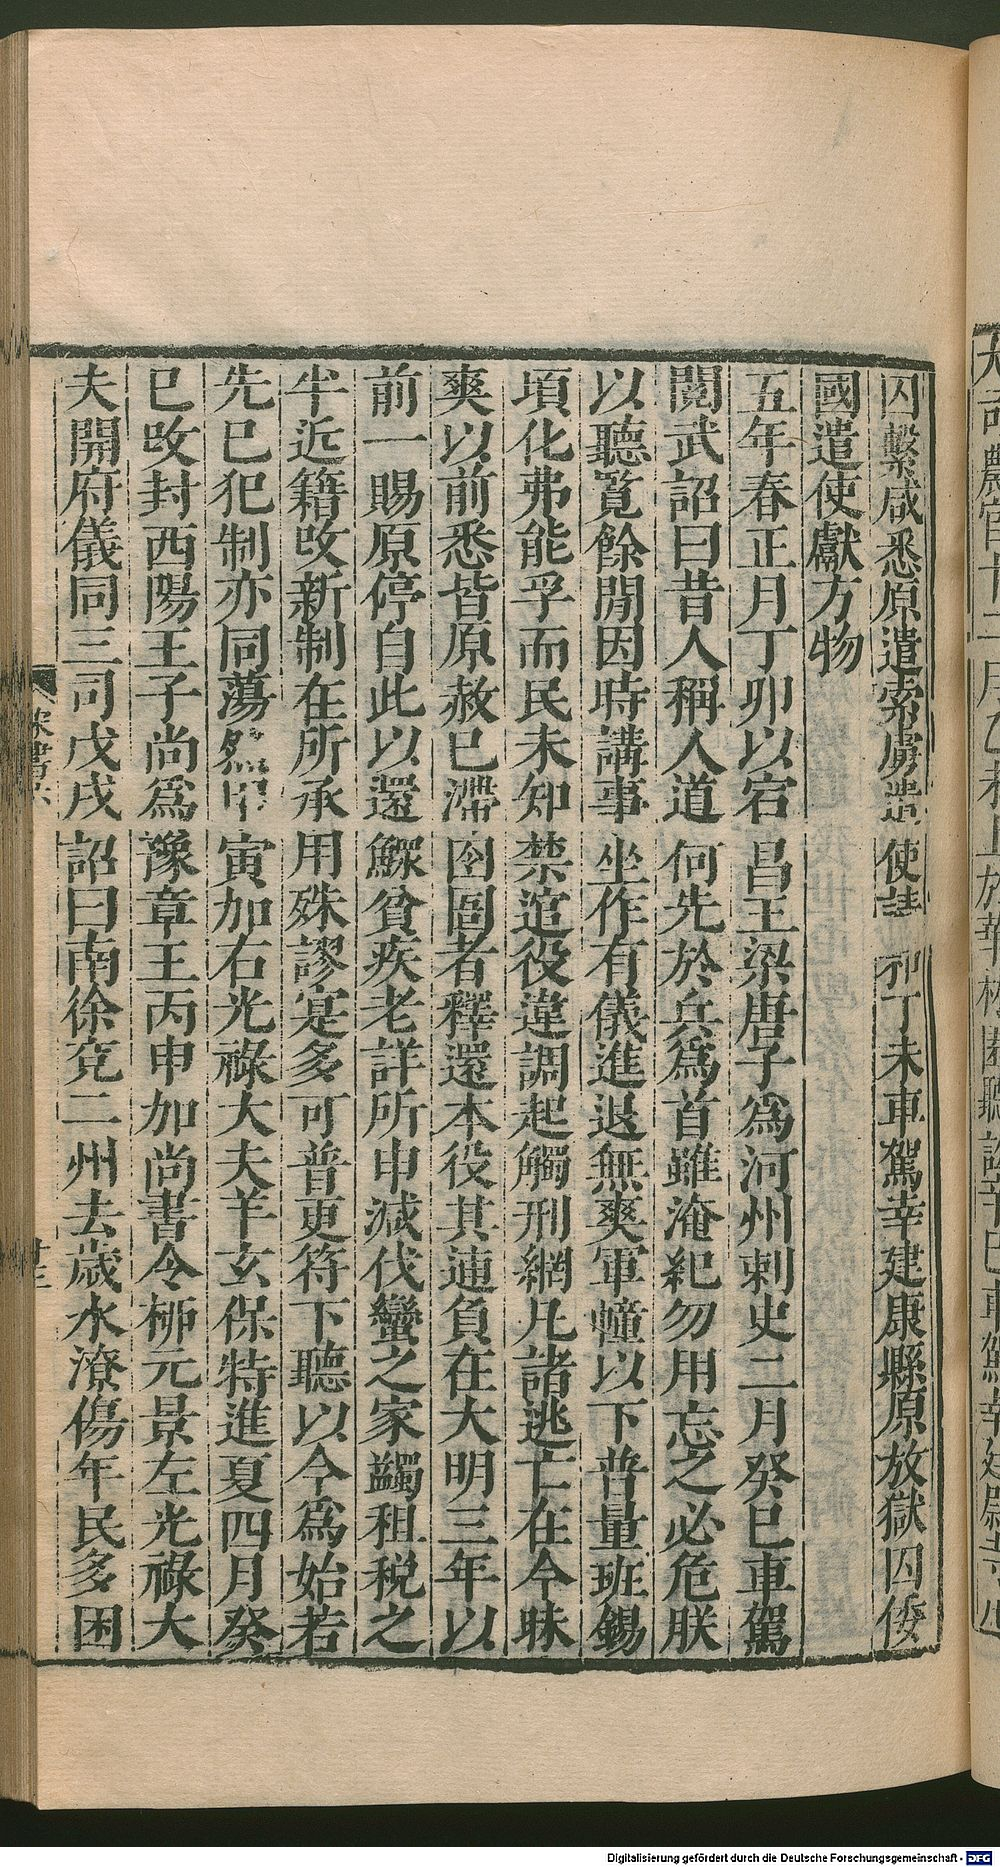 囚繫咸悉原遣索虜遣使請 丁未車駕幸建康縣原放獄囚倭
國遣使獻方物
五年春正月丁卯以宕昌王梁唐子為河州刺史二月癸巳車駕
閱武詔曰昔人稱人道何先於兵為首雖淹紀勿用忘之必危朕
以聽覽餘閒因時講事坐作有儀進退無爽軍幢以下普量班錫
頃化弗能孚而民未知禁逭役違調起觸刑網凡諸逃亡在今昧
爽以前悉皆原赦已滯囹圄者釋還本役其逋負在大明三年以
前一賜原停自此以還鰥貧疾老詳所申減伐蠻之家蠲租稅之
半近籍改新制在所承用殊謬寔多可普更符下聽以今為始若
先已犯制亦同蕩然甲寅加右光祿大夫羊玄保特進夏四月癸
巳改封西陽王子尚為豫章王丙申加尚書令柳元景左光祿大
夫開府儀同三司戊戌詔曰南徐兗二州去歲水潦傷年民多困
宋書六
Digitalisierung gefördert durch die Deutsche Forschungsgemeinschaft - DFG